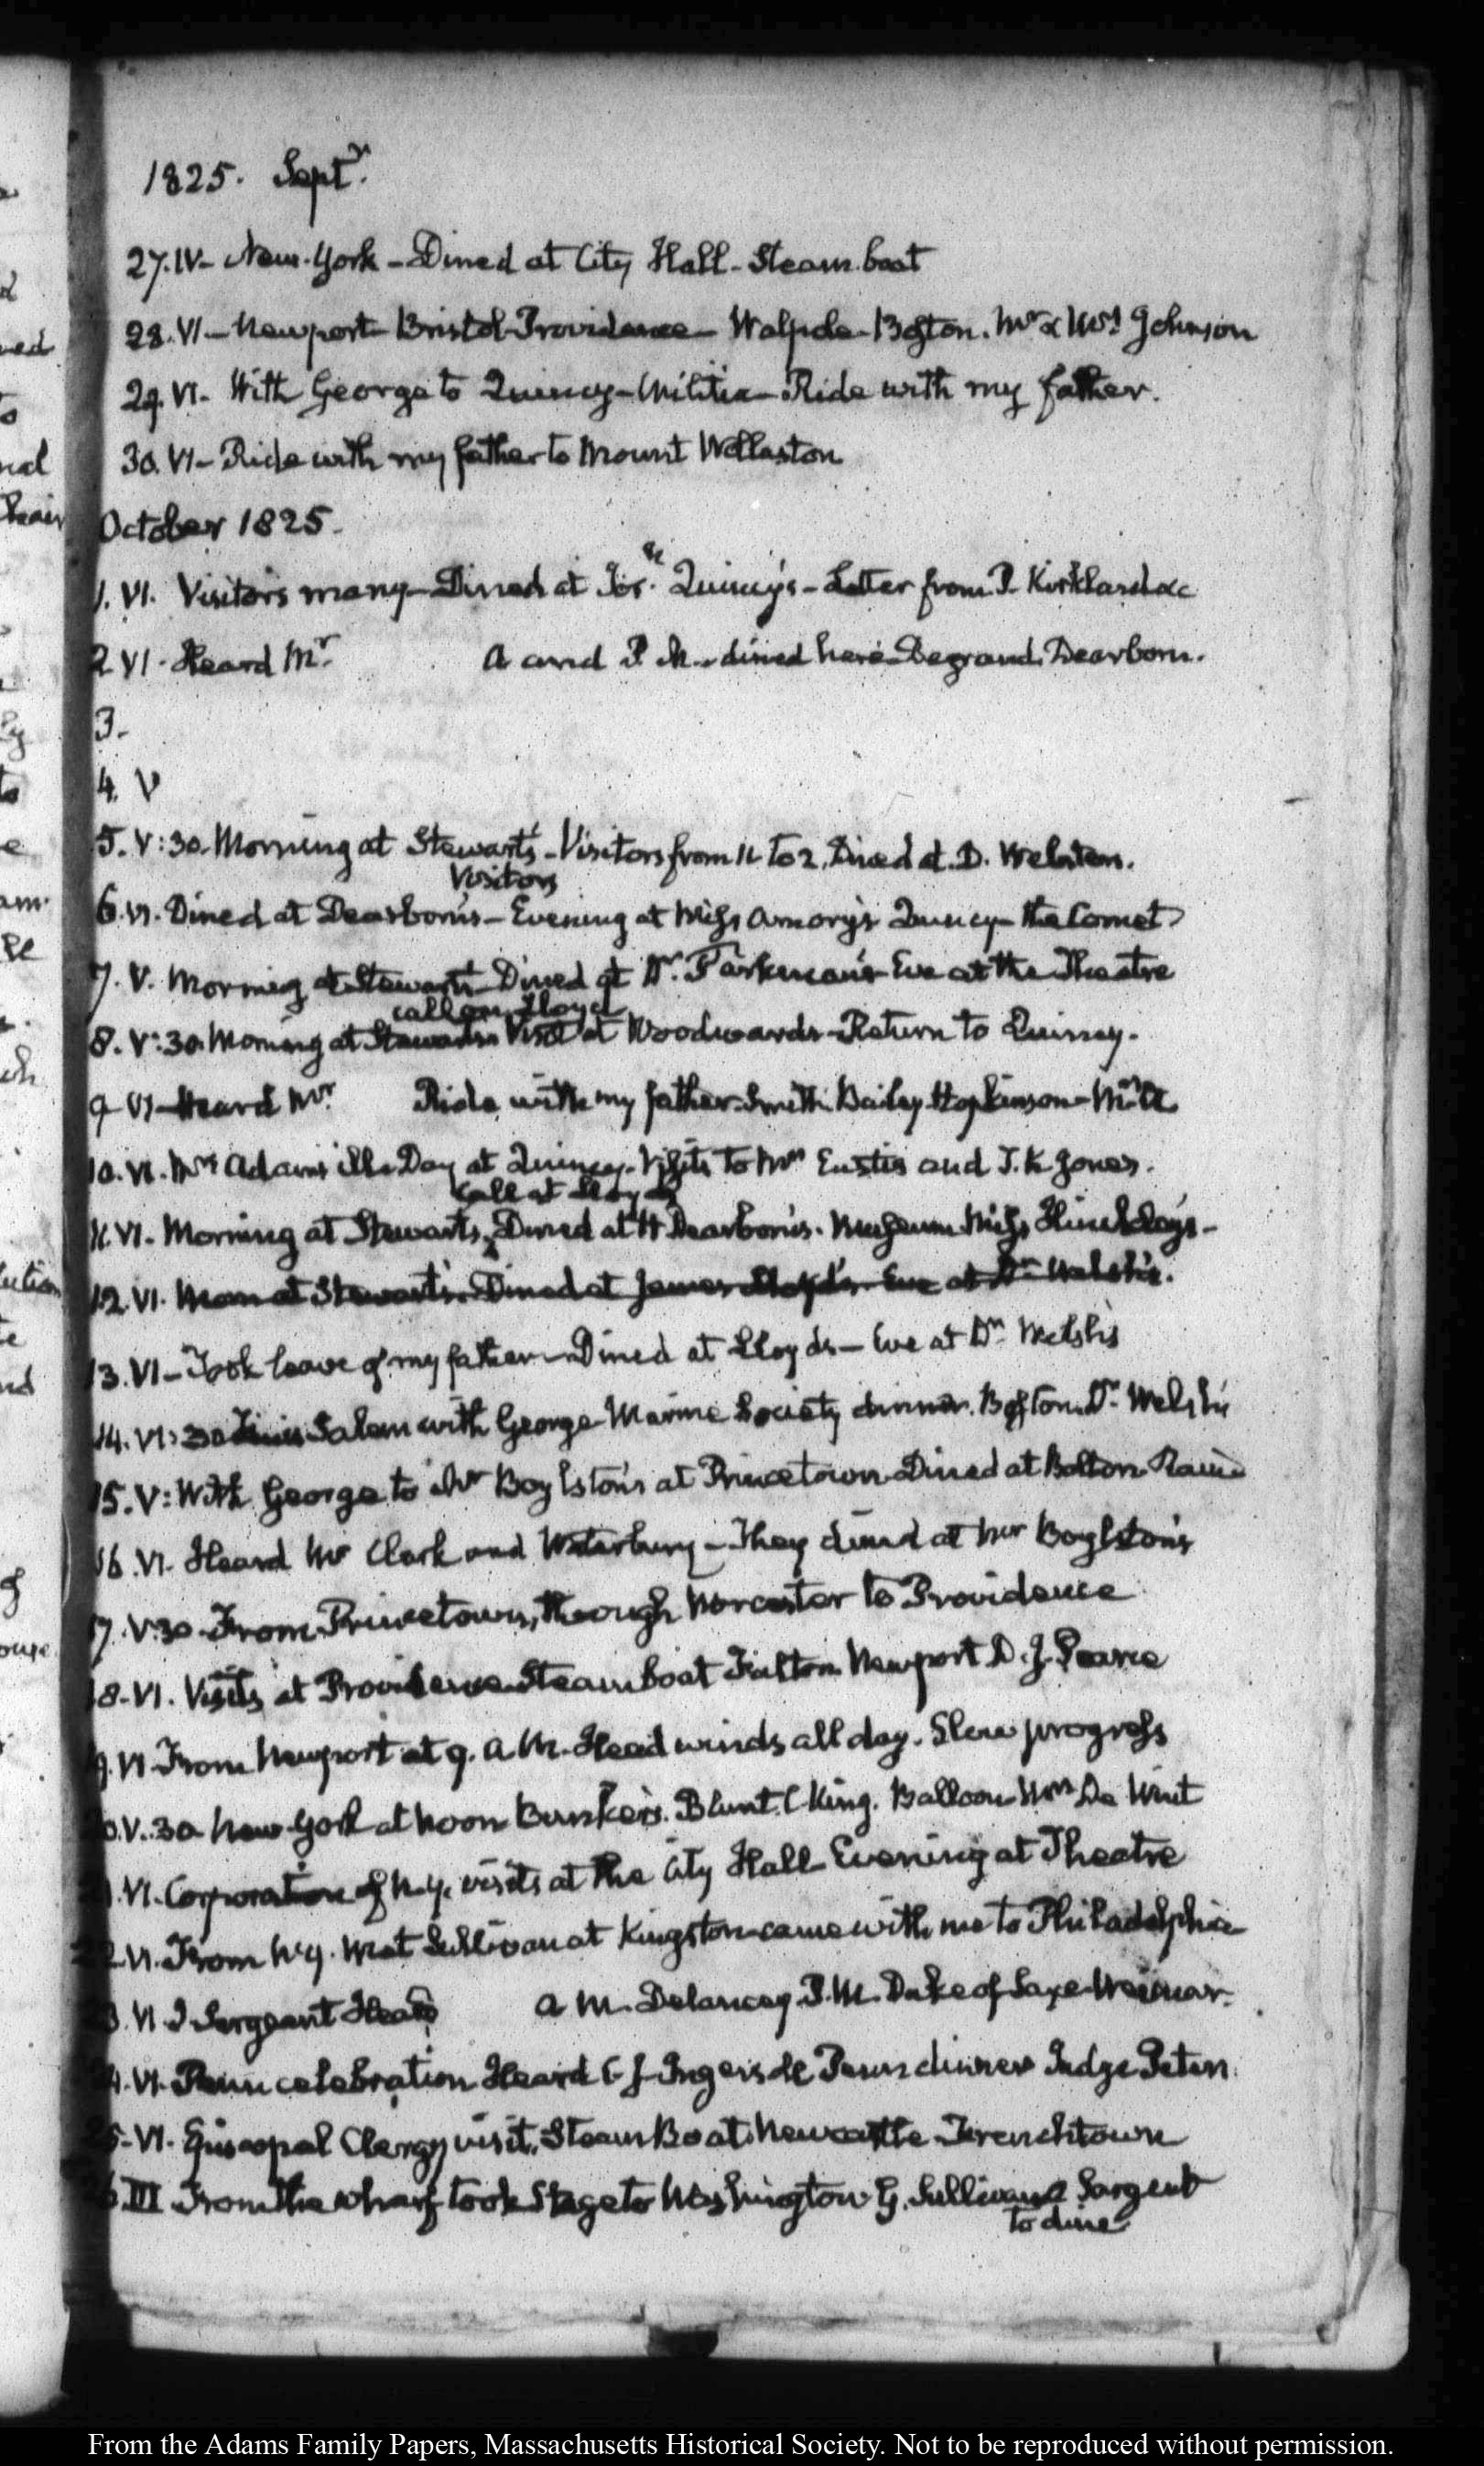 1825. Septr.
27. IV- New-York - Dined at City Hall - Steam boat
28. VI - Newport - Bristol - Providence - Walpole - Boston. Mr & Mrs Johnson
29. VI. With George to Quincy - Militia - Ride with my father.
30. VI - Ride with my father to Mount Wollaston
October 1825.
1. VI. Visitors many - Dined at Quincy's - Letter from P. Kirkland &c
2 VI. Heard Mr. A and P. M. - dined here Degrand. Dearborn.
3.
4. V
5. V:30. Morning at Stewart's - Visitors from 11 to 2. Dined at D. Webster.
Visitors
6. VI. Dined at Dearborn's - Evening at Miss Amory's Quincy - the Comet
7. V. Morning at Stewart's Dined at Dr. Parkman's Eve at the Theatre
call on Lloyd
8. V:30. Morning at Stewarts Visit at Woodwards - Return to Quincy.
9 VI - Heard Mr. Ride with my father. Smith. Bailey Hopkinson -
10. VI. Mrs Adams ill. Day at Quincy. Visits to Mrs Eustis and T. K. Jones.
Call at Lloyds
11. VI. Morning at Stewarts, Dined at H Dearborn's. Museum Miss Hinckley's -
12. VI. Morn at Stewart's. Dined at James Lloyd's. Eve at Dr Welsh's.
13. VI - Took leave of my father - Dined at Lloyds - Eve at Dr. Welsh's
14. VI:30 Salem with George - Marine Society dinner. Boston. Dr. Welsh's
15. V: With George to Mr Boylston's at Princetown Dined at Bolton. Rain
16. VI. Heard Mr Clark and Waterbury - They dined at Mr Boylston's
17. V:30 - From Princetown, through Worcester to Providence
18. VI. Visits at Providence Steam boat Fulton. Newport D. J. Pearce
9. VI From Newport at 9. A. M. Head winds all day. Slow progress
0. V. 30 New-York at noon Bunker's. Blunt. C King. Balloon Mrs De Wint
VI. Corporation of N.Y. visits at the City Hall Evening at Theatre
2 VI. From N.Y. met Sullivan at Kingston came with me to Philadelphia
3. VI J Sergeant Heard A M. Delancey. P. M. Duke of Saxe-Weimar.
4. VI. Penn celebration Heard C J Ingersoll Penn dinner Judge Peters
5. VI. Episcopal Clergy visit. Steam Boat. Newcastle Frenchtown
6 III From the wharf took Stage to Washington G. Sullivan & Sargent
to dine
From the Adams Family Papers, Massachusetts Historical Society. Not to be reproduced without permission.